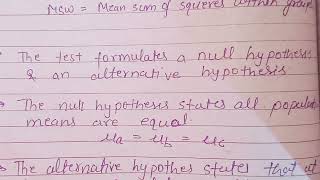 MSW = Mean sum of squares within group
The test formulates a null hypothesis
& an alternative hypothesis
The null hypothesis states all populat
means are equal.
μa = μb = μc
The alternative hypothes states that at